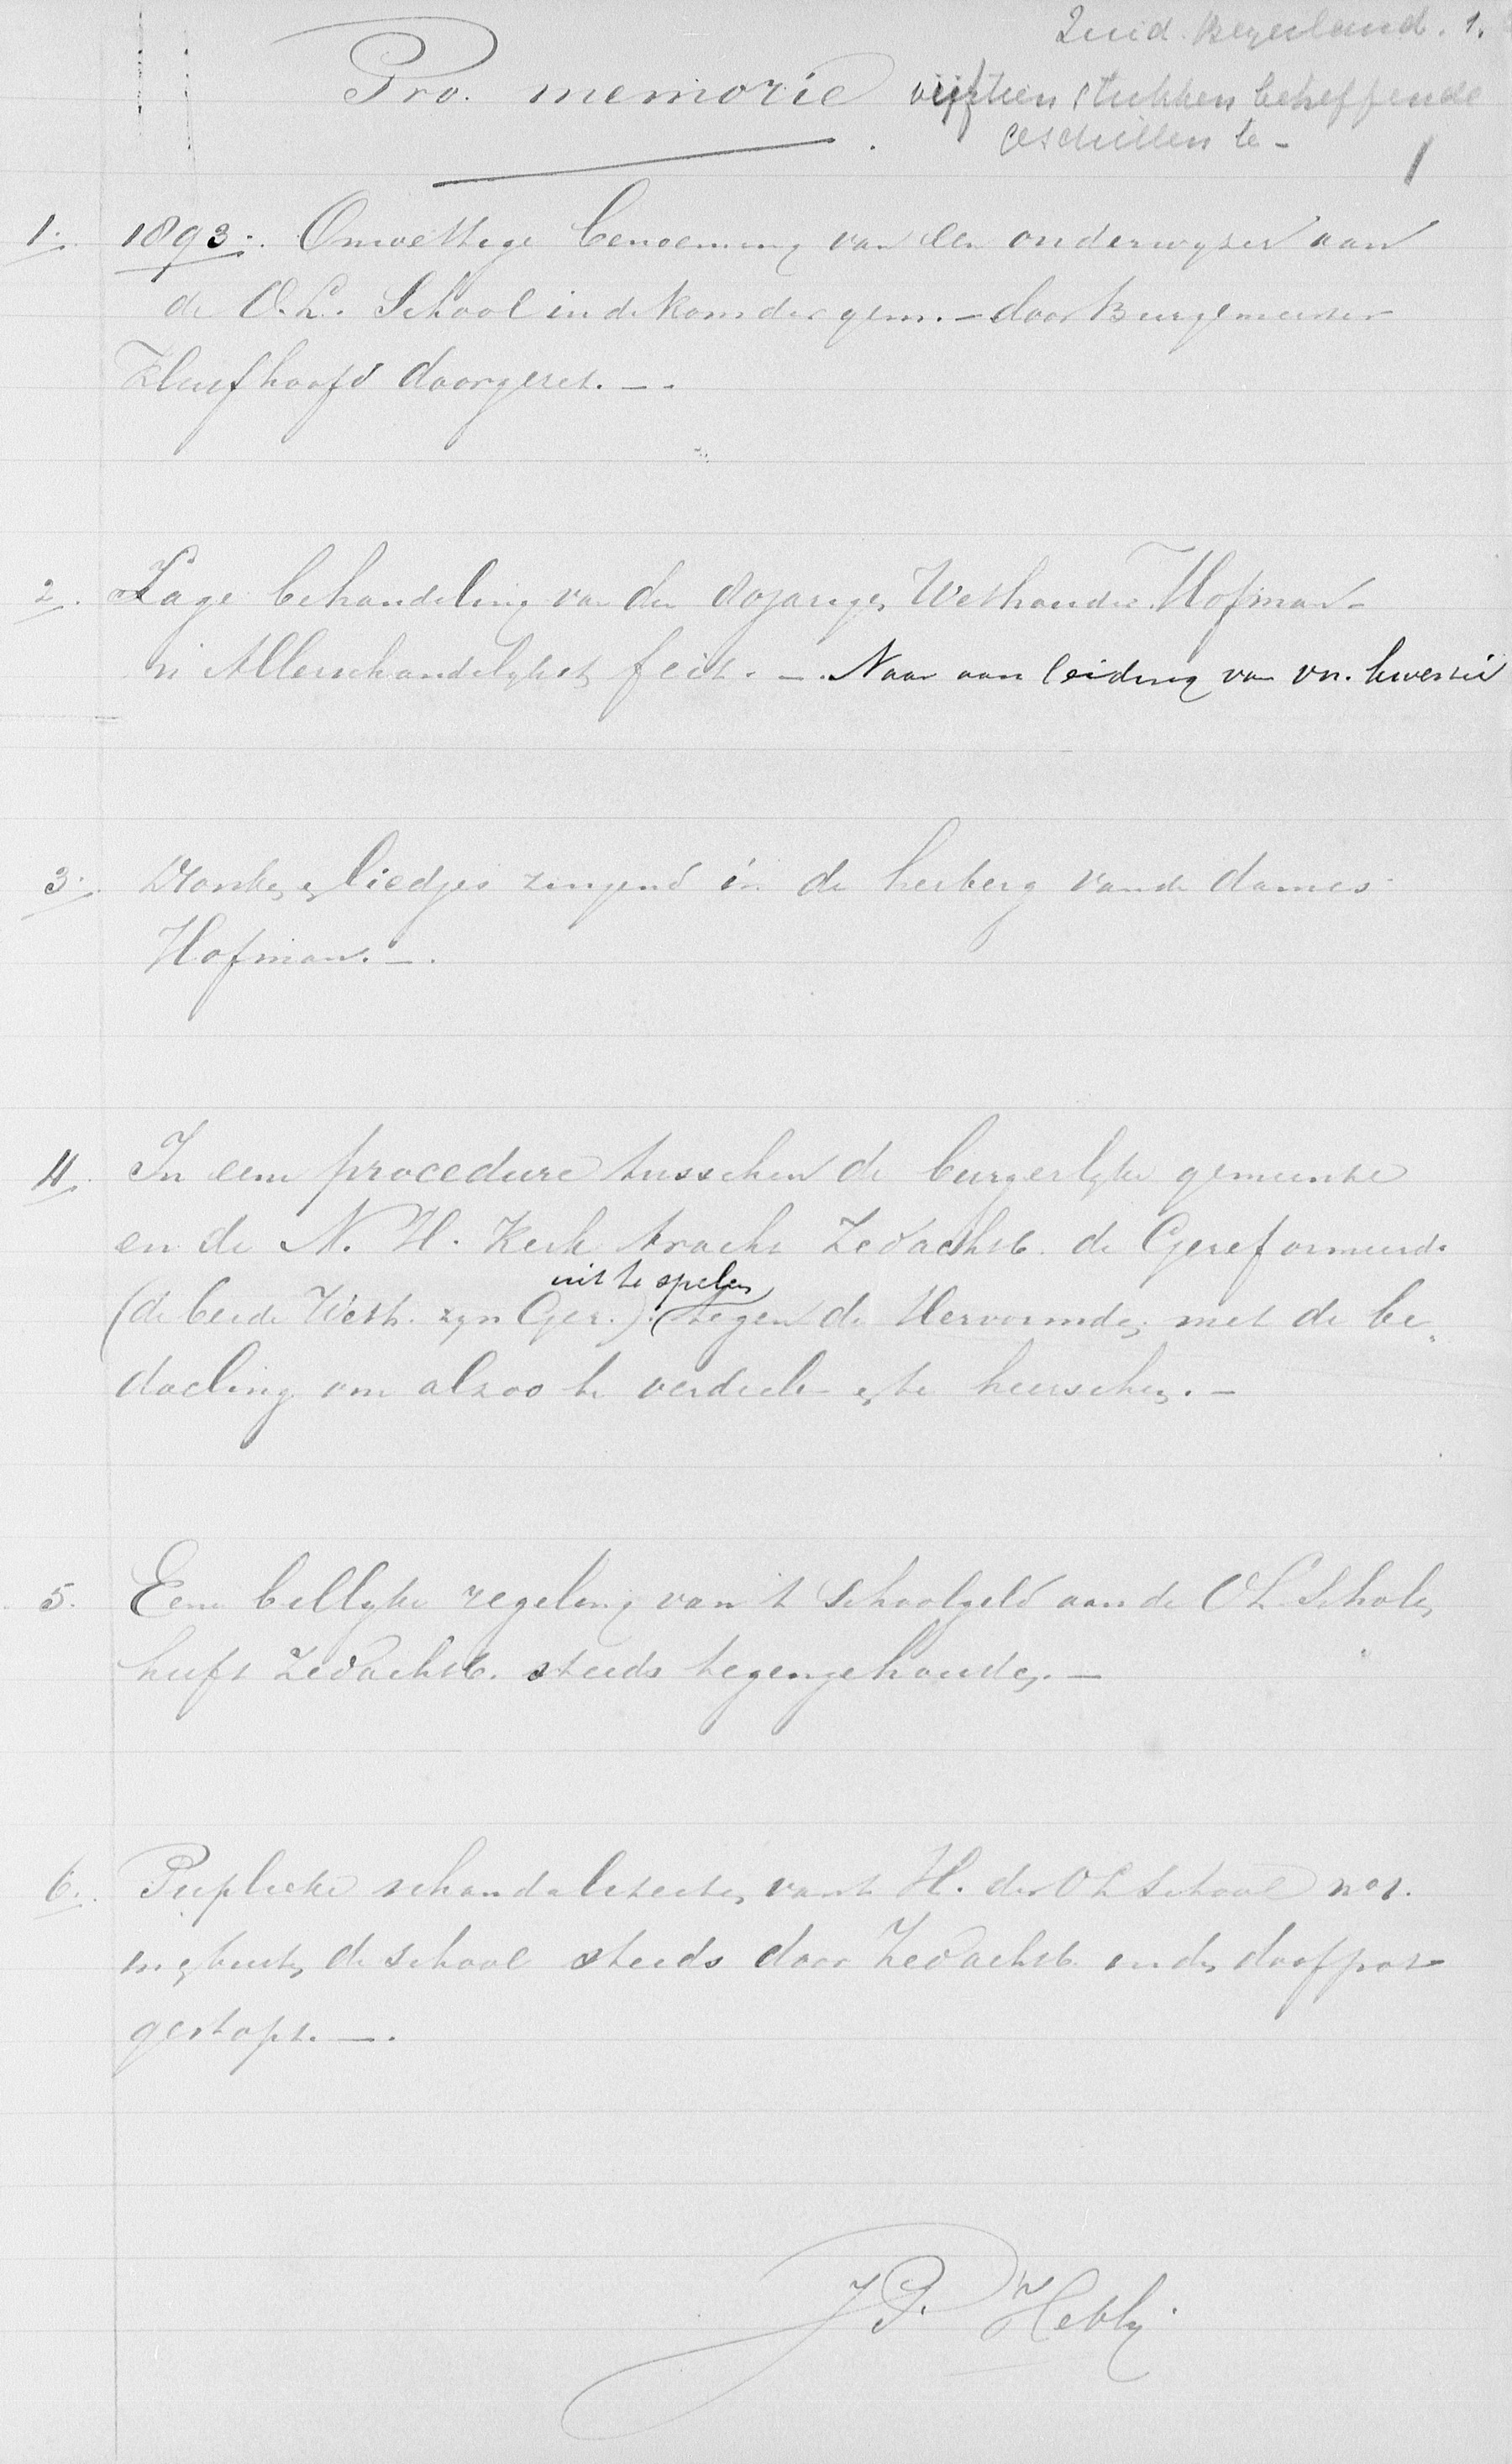 Zuid-Beyerland. 1.
Pro memorie vijftien stukken betreffende
geschillen te -
1
1. 1893. Onwettige benoeming van een onderwyzer aan
de O.L. School in de kom der gem. - door Burgemeester
doorgezet. -.
2. Lage behandeling van den 80jarigen Wethouder Hofman -
'n Allerschandelykst feit. -. Naar aanleiding van vn. kwestie
3. Dronken liedjes zingend in de herberg van de dames
Hofman. -.
4. In eene procedure tusschen de burgerlyke gemeente
en de N. H. Kerk tracht ZEdAchtb. de Gereformeerde
uit te spelen
(de beide Weth. zyn Ger.) tegen de Hervormden met de be„
doeling om alzoo te verdeelen en te heerschen. -
5. Eene billyke regeling van 't schoolgeld aan de OL Scholen
heeft ZEdAchtb. steeds tegengehouden. -
6. Publieke van 't H. der OL School no 1.
in en buiten de school steeds door ZEdAchtb. in den doofpot
gestopt. -.
J P Hebly